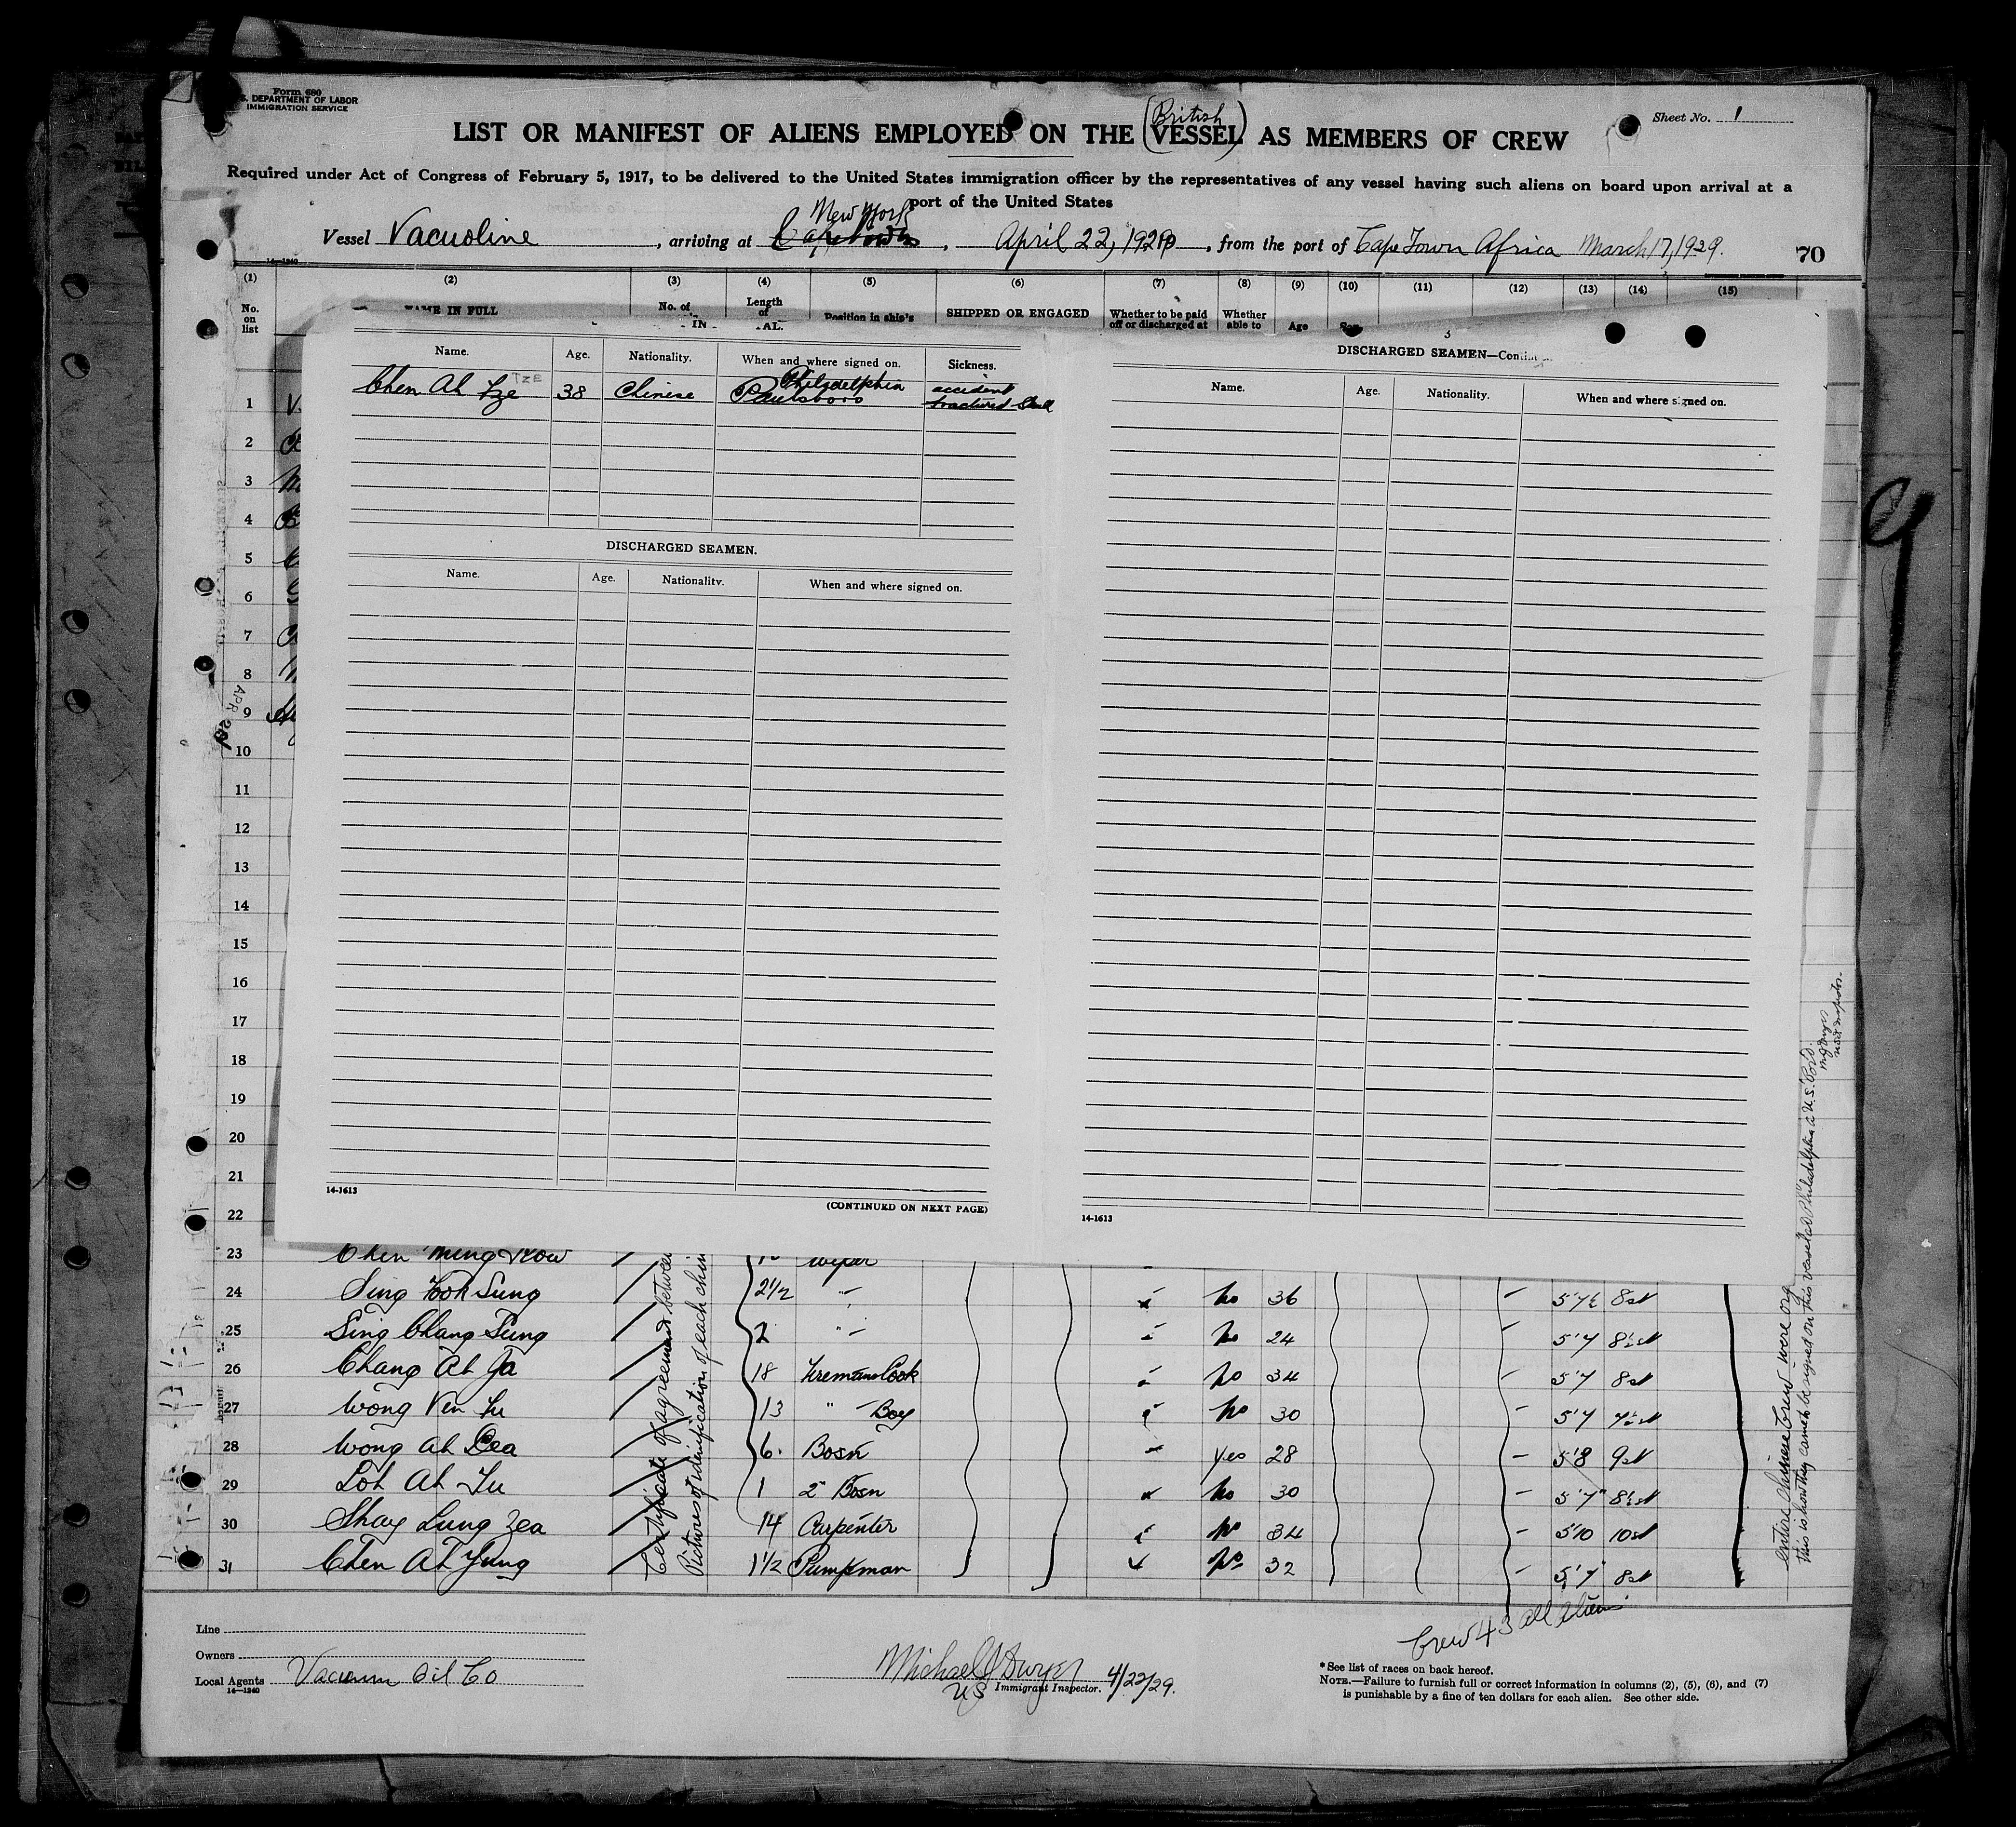 Form 680
S. DEPARTMENT OF LABOR
IMMIGRATION SERVICE
Sheet No. 1
(British)
LIST OR MANIFEST OF ALIENS EMPLOYED ON THE VESSEL AS MEMBERS OF CREW
Required under Act of Congress of February 5, 1917, to be delivered to the United States immigration officer by the representatives of any vessel having such aliens on board upon arrival at a
port of the United States
New York
Vessel Vacuoline, arriving at Cape Town, April 22, 1929, from the port of Cape Town Africa March 17, 1929.
70
14—1240
(1) (2) (3) (4) (5) (6) (7) (8) (9) (10) (11) (12) (13) (14) (15)
No. on list
NAME IN FULL
No. of
Length of
Position in ship's
SHIPPED OR ENGAGED
Whether to be paid off or discharged at
Whether able to
Age
Sex
IN AL.
Name. Age. Nationality. When and where signed on. Sickness.
Tze
Chen Ah Tze 38 Chinese Philadelphia Paulsboro accident fractured Skull
DISCHARGED SEAMEN.
Name. Age. Nationality. When and where signed on.
14-1613
(CONTINUED ON NEXT PAGE)
3
DISCHARGED SEAMEN—Con
Name. Age. Nationality. When and where signed on.
14-1613
1
2
3
4
5
6
7
8
9
10
11
12
13
14
15
16
17
18
19
20
21
22
23 Chen Ming Kow Wiper
24 Sing Fook Sung 2 1/2 " no 36 8st
25 Sing Chang Sung 2 " no 24 5'7 8½st
26 Chang Ah Ya 18 Firemans Cook no 34 5'7 8st
27 Wong Ven Fu 13 " Boy no 30 5'7 7½st
28 Wong Ah Dea 6 Bosn yes 28 5'8 9st
29 Loh Ah Fu 1 2" Bosn no 30 5'7" 8½st
30 Shay Lung Zea 14 Carpenter no 34 5'10 10st
31 Chen Ah Yung 1 1/2 Pumpman no 32 5'7 8st
Certificate of agreement between
Pictures of identification of each chin
APR
entire Chinese Crew were org
this is how they came to be signed on this vessel at Philadelphia a U.S. Port.
Crew 43 all aliens
Line
Owners
Local Agents Vacuum Oil Co
14—1240
Michael J Dwyer
US Immigrant Inspector. 4/22/29.
*See list of races on back hereof.
NOTE.—Failure to furnish full or correct information in columns (2), (5), (6), and (7)
is punishable by a fine of ten dollars for each alien. See other side.